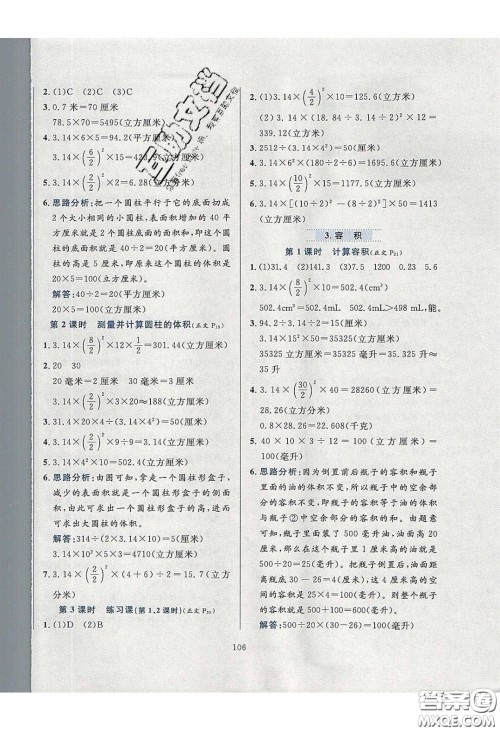 2.(1)C (2)C (3)C
3.0.7米=70厘米
78.5×70=5495(立方厘米)
4.3.14×5×6=94.2(平方厘米)
3.14×(6/2)²×15=423.9(立方厘米)
5.3.14×(2/2)²×2=6.28(立方厘米)
6.思路分析:把一个圆柱平行于它的底面切成
2个大小相同的小圆柱,表面积增加的40平
方厘米就是2个圆柱底面的面积,那么圆柱
的底面积就是40÷2=20(平方厘米)。
圆柱的高是5厘米,所以这个圆柱的体积是
20×5=100(立方厘米)。
解答:40÷2=20(平方厘米)
20×5=100(立方厘米)
第2课时 测量并计算圆柱的体积(正文P₁₉)
1.3.14×(8/2)²×12×1/4=150.72(立方厘米)
2.20 30
20毫米=2厘米 30毫米=3厘米
3.14×(2/2)²×3×20≈188(立方厘米)
3.31.4×20×4÷(3.14×4²)=50(厘米)
4.3.14×(4/2)²×9÷9=3.14(立方厘米)
5.3.14×4²×10=502.4(立方厘米)
6.思路分析:由图可知,拿走一个圆柱形盒子,
减少的表面积就是一个圆柱形盒子的侧面
积,由此可求出一个圆柱形盒子的高,进而求
出大圆柱的体积。
解答:314÷(2×3.14×10)=5(厘米)
3.14×10²×(5×3)=4710(立方厘米)
7.3.14×(2/2)²×(4+6)÷2=15.7(立方
分米)
第3课时 练习课(第1、2课时)(正文P₂₀)
1.(1)D (2)B
2.(1)3.14×(4/2)²×10=125.6(立方厘米)
(2)3.14×(6/2)²×10+3.14×(3/2)²×10×1/2=
339.12(立方厘米)
3.2512÷(3.14×4²)=50(厘米)
4.3.14×6²×(10+20)÷2=1695.6(立方厘米)
5.3.14×(10/2)²×15=1177.5(立方厘米)
6.3.14×[(10÷2)²-(8÷2)²]×50=1413
(立方厘米)
3.容 积
第1课时 计算容积(正文P₂₁)
1.(1)31.4 (2)141.3 (3)7.5 1200 0.23 5.6
2.3.14×(8/2)²×10=502.4(cm³)
502.4cm³=502.4mL 502.4mL>498mL,能装下。
3.94.2÷3.14÷2=15(厘米)
3.14×15²×50=35325(立方厘米)
35325立方厘米=35325毫升=35.325升≈
35升
4.3.14×(30/2)²×40=28260(立方厘米)=
28.26(立方分米)
0.8×28.26=22.608(千克)
5.40×10×3÷12=100(立方厘米)=
100(毫升)
6.思路分析:因为倒置前后瓶子的容积和瓶子
里面的油的体积都不变,所以瓶子中空余部
分的容积不变,即瓶子的容积等于油的体积
与瓶子②中空余部分的容积和。由题意可
知,瓶子里现有油500毫升,油面高20厘米,
500÷20=25(毫升),表示瓶子里1厘米高的
油的体积是25毫升。把瓶子倒置后,油面
距离瓶底30-26=4(厘米),这4厘米高的空
间的容积是25×4=100(毫升)。则整个瓶
子的容积是500+100=600(毫升)。
解答:500÷20×(30-26)=100(毫升)
106
答案圈
MXQE.COM